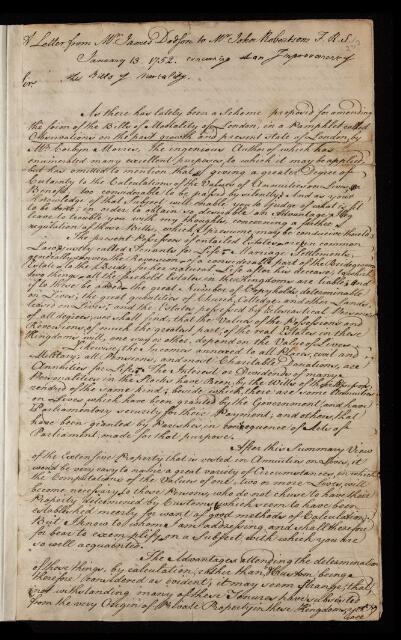 A Letter from Mr. James Dodson to Mr. John Robertson F.R.S.
January 13. 1752. concerning an Improvement of
Sir the Bills of Mortality.
As there has lately been a Scheme proposed for amending
the form of the Bills of Mortality of London, in a Pamphlet called
Observations on the past growth and present State of London, by
Mr. Corbyn Morris. The ingenious Author of which has
enumerated many excellent purposes, to which it may be applied
but has omitted to mention that of giving a greater Degree of
Certainty to the Calculations of the Values of Annuities on Lives; a
Benefit, too considerable to be passed by silently; And as your
knowledge of that Subject will enable you to judge of what is fit
to be done, in order to obtain so desirable an Advantage, I beg
leave to trouble you with my thoughts concerning a further
regulation of those Bills, which, I presume, may be conducive thereto.
The present Possessors of entailed Estates are in common
Law justly called Tenants for Life; Marriage Settlements
generally convey the Reversion of a considerable part of the Bridegroom's
Estate to the Bride, for her natural Life after his decease; to which
two things all the freehold Estates in these Kingdoms are liable, and
if to these be added the great Number of Copyholds determinable
on Lives; the great quantities of Church, College and other Lands
leased on Lives; and the Estates possessed by Ecclesiastical Persons
of all degrees; we shall find, that the Values of the Possessions and
Reversions of much the greatest part of the real Estates in these
Kingdoms will, one way or other, depend on the Value of Lives.
Likewise, the Incomes annexed to all Places, civil and
Military; all Pensions, and most Charitable Donations, are
Annuities for Life; The Interest or Dividends of many
Personalities in the Stocks have been, by the Wills of the
rendered of the same kind; beside which, there are some Annuities
on Lives which have been granted by the Government and have
Parliamentary security for their Payment; and others, that
have been granted by Parishes, in consequence of Acts of
Parliament made for that purpose.
After this Summary View
of the Extensive Property that is vested in Annuities on Lives, it
would be very easy to name a great variety of Circumstances, in which
the Computations of the Values of one, two or more Lives, will
become necessary to those Persons, who do not chuse to have their
Property determined by Customs, which seem to have been
established merely for want of good methods of Calculation;
But I know to whom I am addressing, and shall therefore
forbear to exemplify, on a Subject with which you are
so well acquainted.
The Advantages attending the determination
of these things, by calculation, rather than Custom, being
therefore considered as evident; it may seem strange, that,
notwithstanding many of these Tenures have subsisted
from the very Origin of Private Property in these Kingdoms, yet